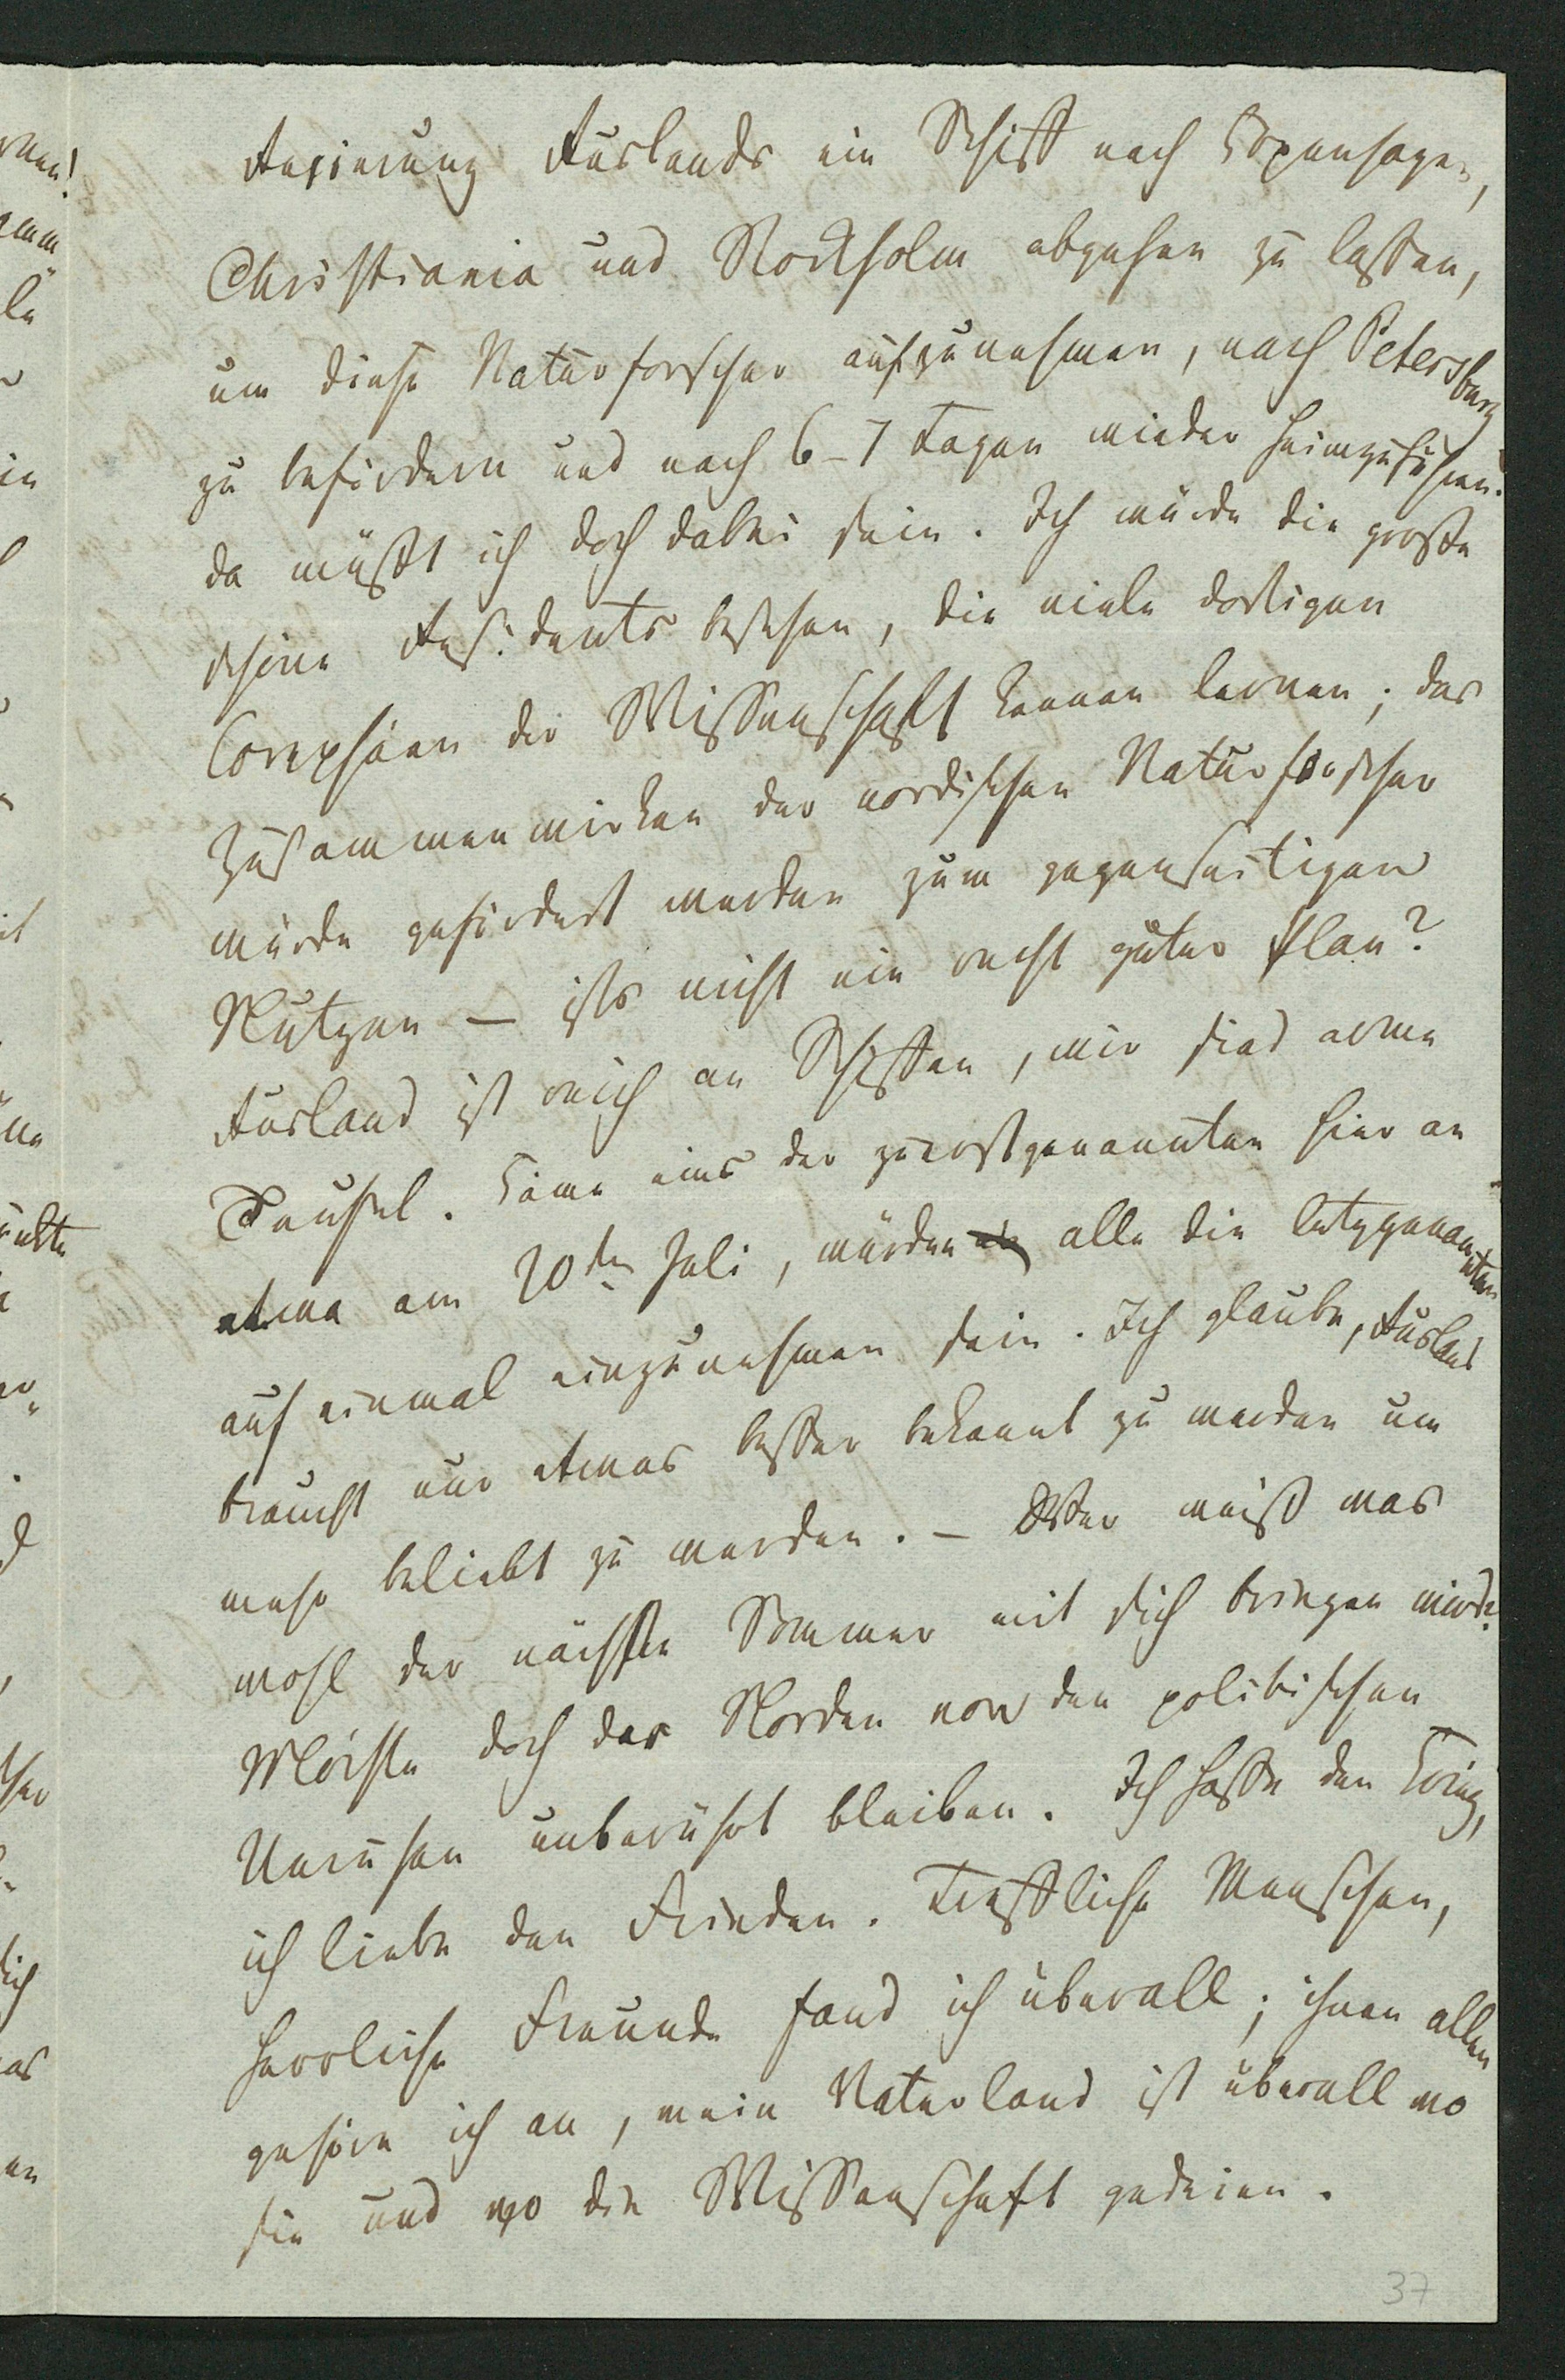 Regierung Ruslands ein Schiff nach Kopenhagen,
Christiania und Stockholm abgehen zu lassen,
um diese Naturforscher aufzunehmen, nach Petersburg
zu befördern und nach 6-7 Tagen wieder heimzuführen.
da müßt ich doch dabei sein. Ich würde die große
schöne Residents besehen, die viele dortigen
Corephäen der Wissenschaft kennen lernen; das
Zusammenwirken der nordischen Naturforscher
würde gefördert werden zum gegenseitigen
Nutzen – ists nicht ein recht guter Plan?
Rusland ist reich an Schiffen, wir sind arme
Teufel. Käme eins der zuerstgenannten hier an
etwa am 20ten Juli, würden alle die letzgenannten
auf einmal einzunehmen sein. Ich glaube, Rusland
braucht nur etwas besser bekannt zu werden um
mehr beliebt zu werden. – Wer weiß was
wohl der nächste Sommer mit sich bringen wird?
Möchte doch der Norden von den politischen
Unruhen unberührt bleiben. Ich hasse den Krieg,
ich liebe den Frieden. Treffliche Menschen,
herrliche Freunde fand ich überall; ihnen allen
gehöre ich an, mein Vaterland ist überall wo
sie und wo die Wissenschaft gedeien.
37